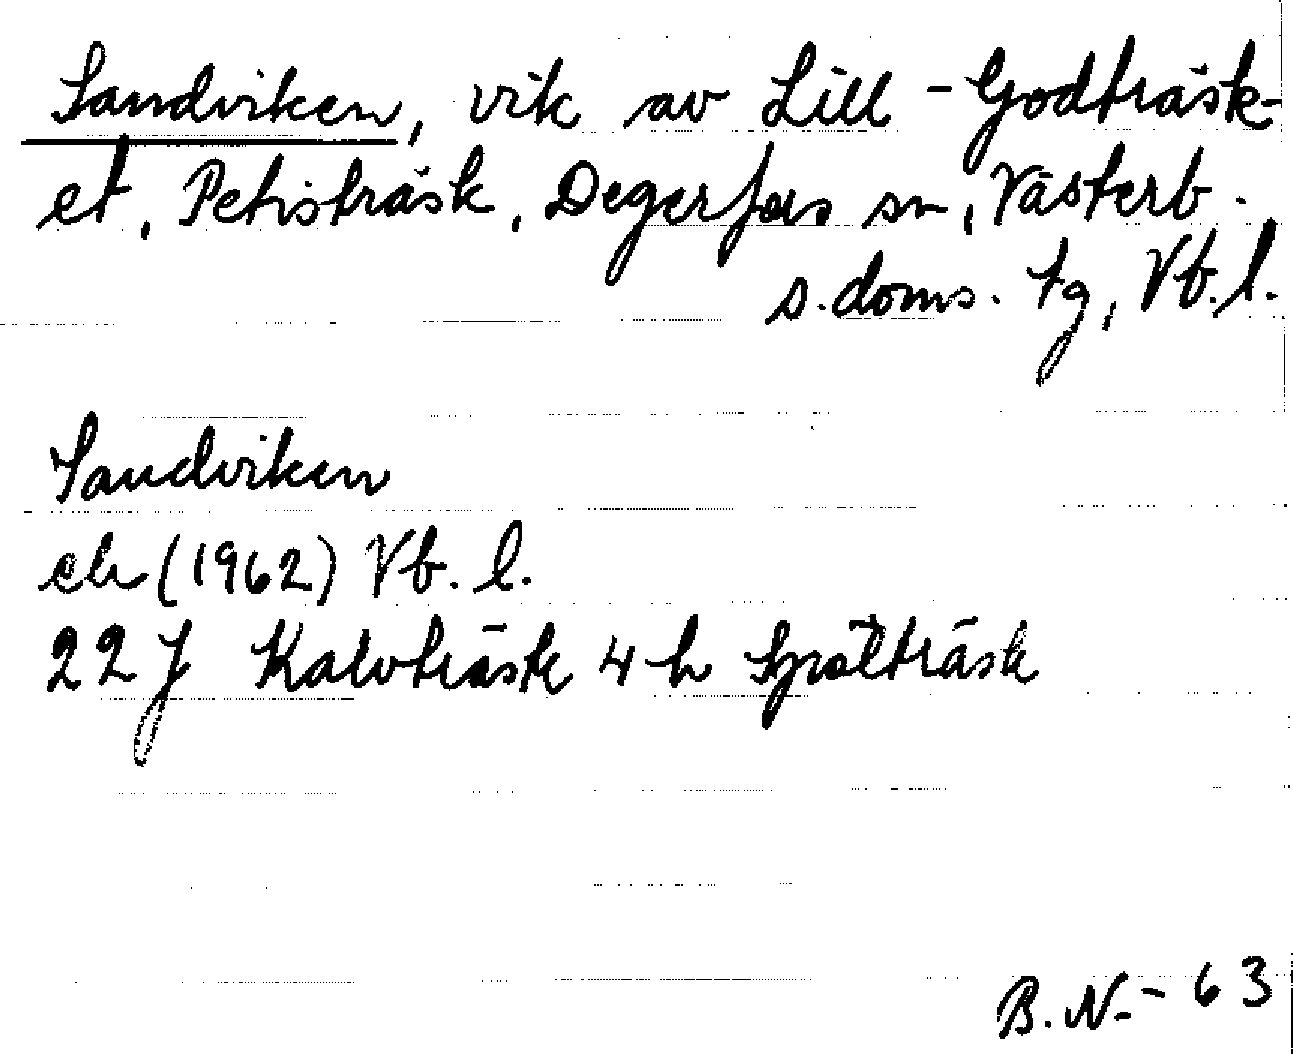 Sandviken, vik av Lill-Godträsk-
et, Petisträsk, Degerfors sn, Västerb.
s. doms. tg, Vb. l.
Sandviken
ek (1962) Vb. l.
22 J Kalvträsk 4 h Spölträsk
B. N. - 63